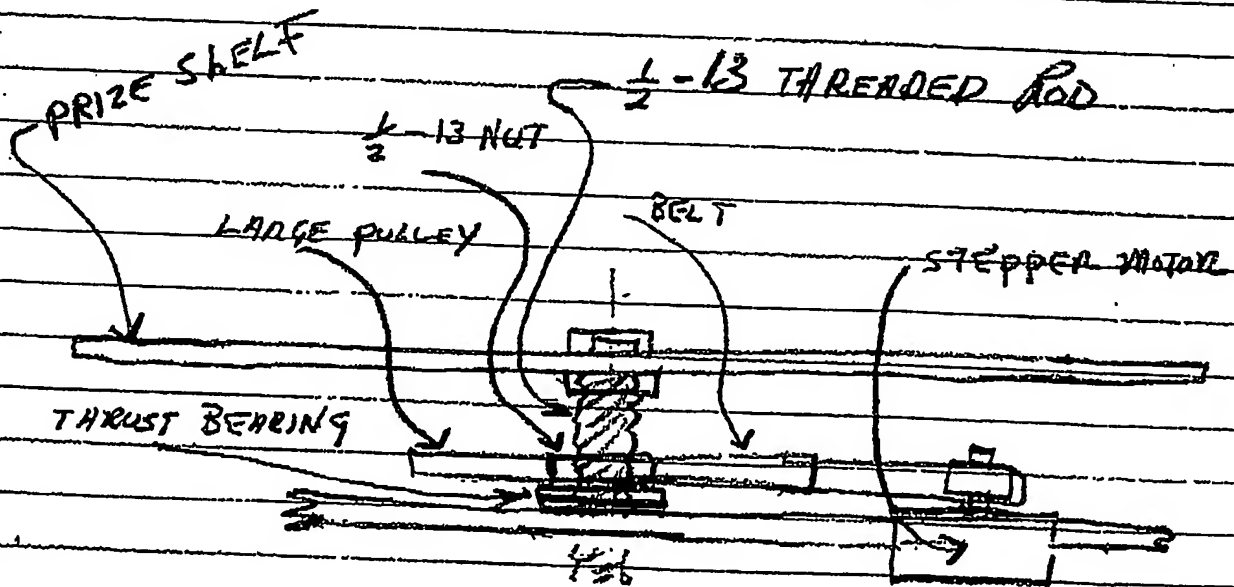 PRIZE SHELF
1/2 -13 THREADED ROD
1/2 -13 NUT
BELT
LARGE PULLEY
STEPPER MOTOR
THRUST BEARING